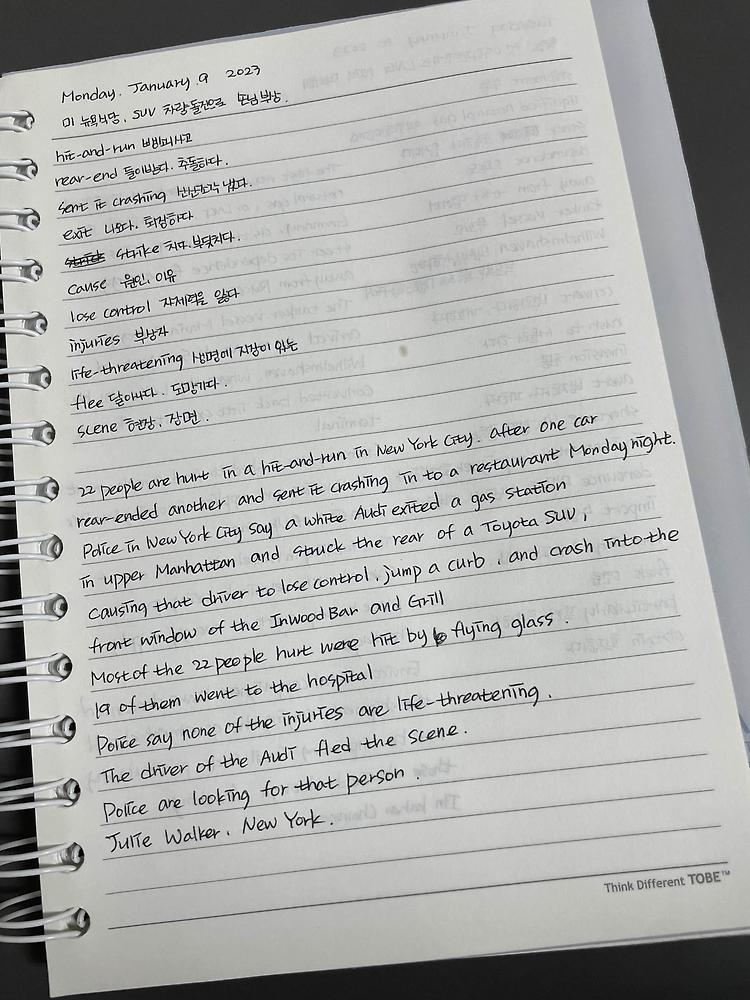 Monday. January. 9 2023
미 뉴욕식당, SUV 차량돌진으로 손님부상.
hit-and-run 뺑소니사고
rear-end 들이받다. 추돌하다.
sent it crashing 산산조각 냈다.
exit 나오다. 퇴장하다
strike 치다. 부딪치다.
cause 원인, 이유
lose control 자제력을 잃다
injuries 부상자
life-threatening 생명에 지장이 있는
flee 달아나다. 도망가다.
scene 현장, 장면.
22 people are hurt in a hit-and-run in New York City. after one car
rear-ended another and sent it crashing in to a restaurant Monday night.
Police in New York City say a white Audi exited a gas station
in upper Manhattan and struck the rear of a Toyota SUV,
causing that driver to lose control, jump a curb, and crash into the
front window of the Inwood Bar and Grill
Most of the 22 people hurt were hit by flying glass.
19 of them went to the hospital
Police say none of the injuries are life-threatening.
The driver of the Audi fled the scene.
Police are looking for that person.
Julie Walker. New York.
Think Different TOBE™